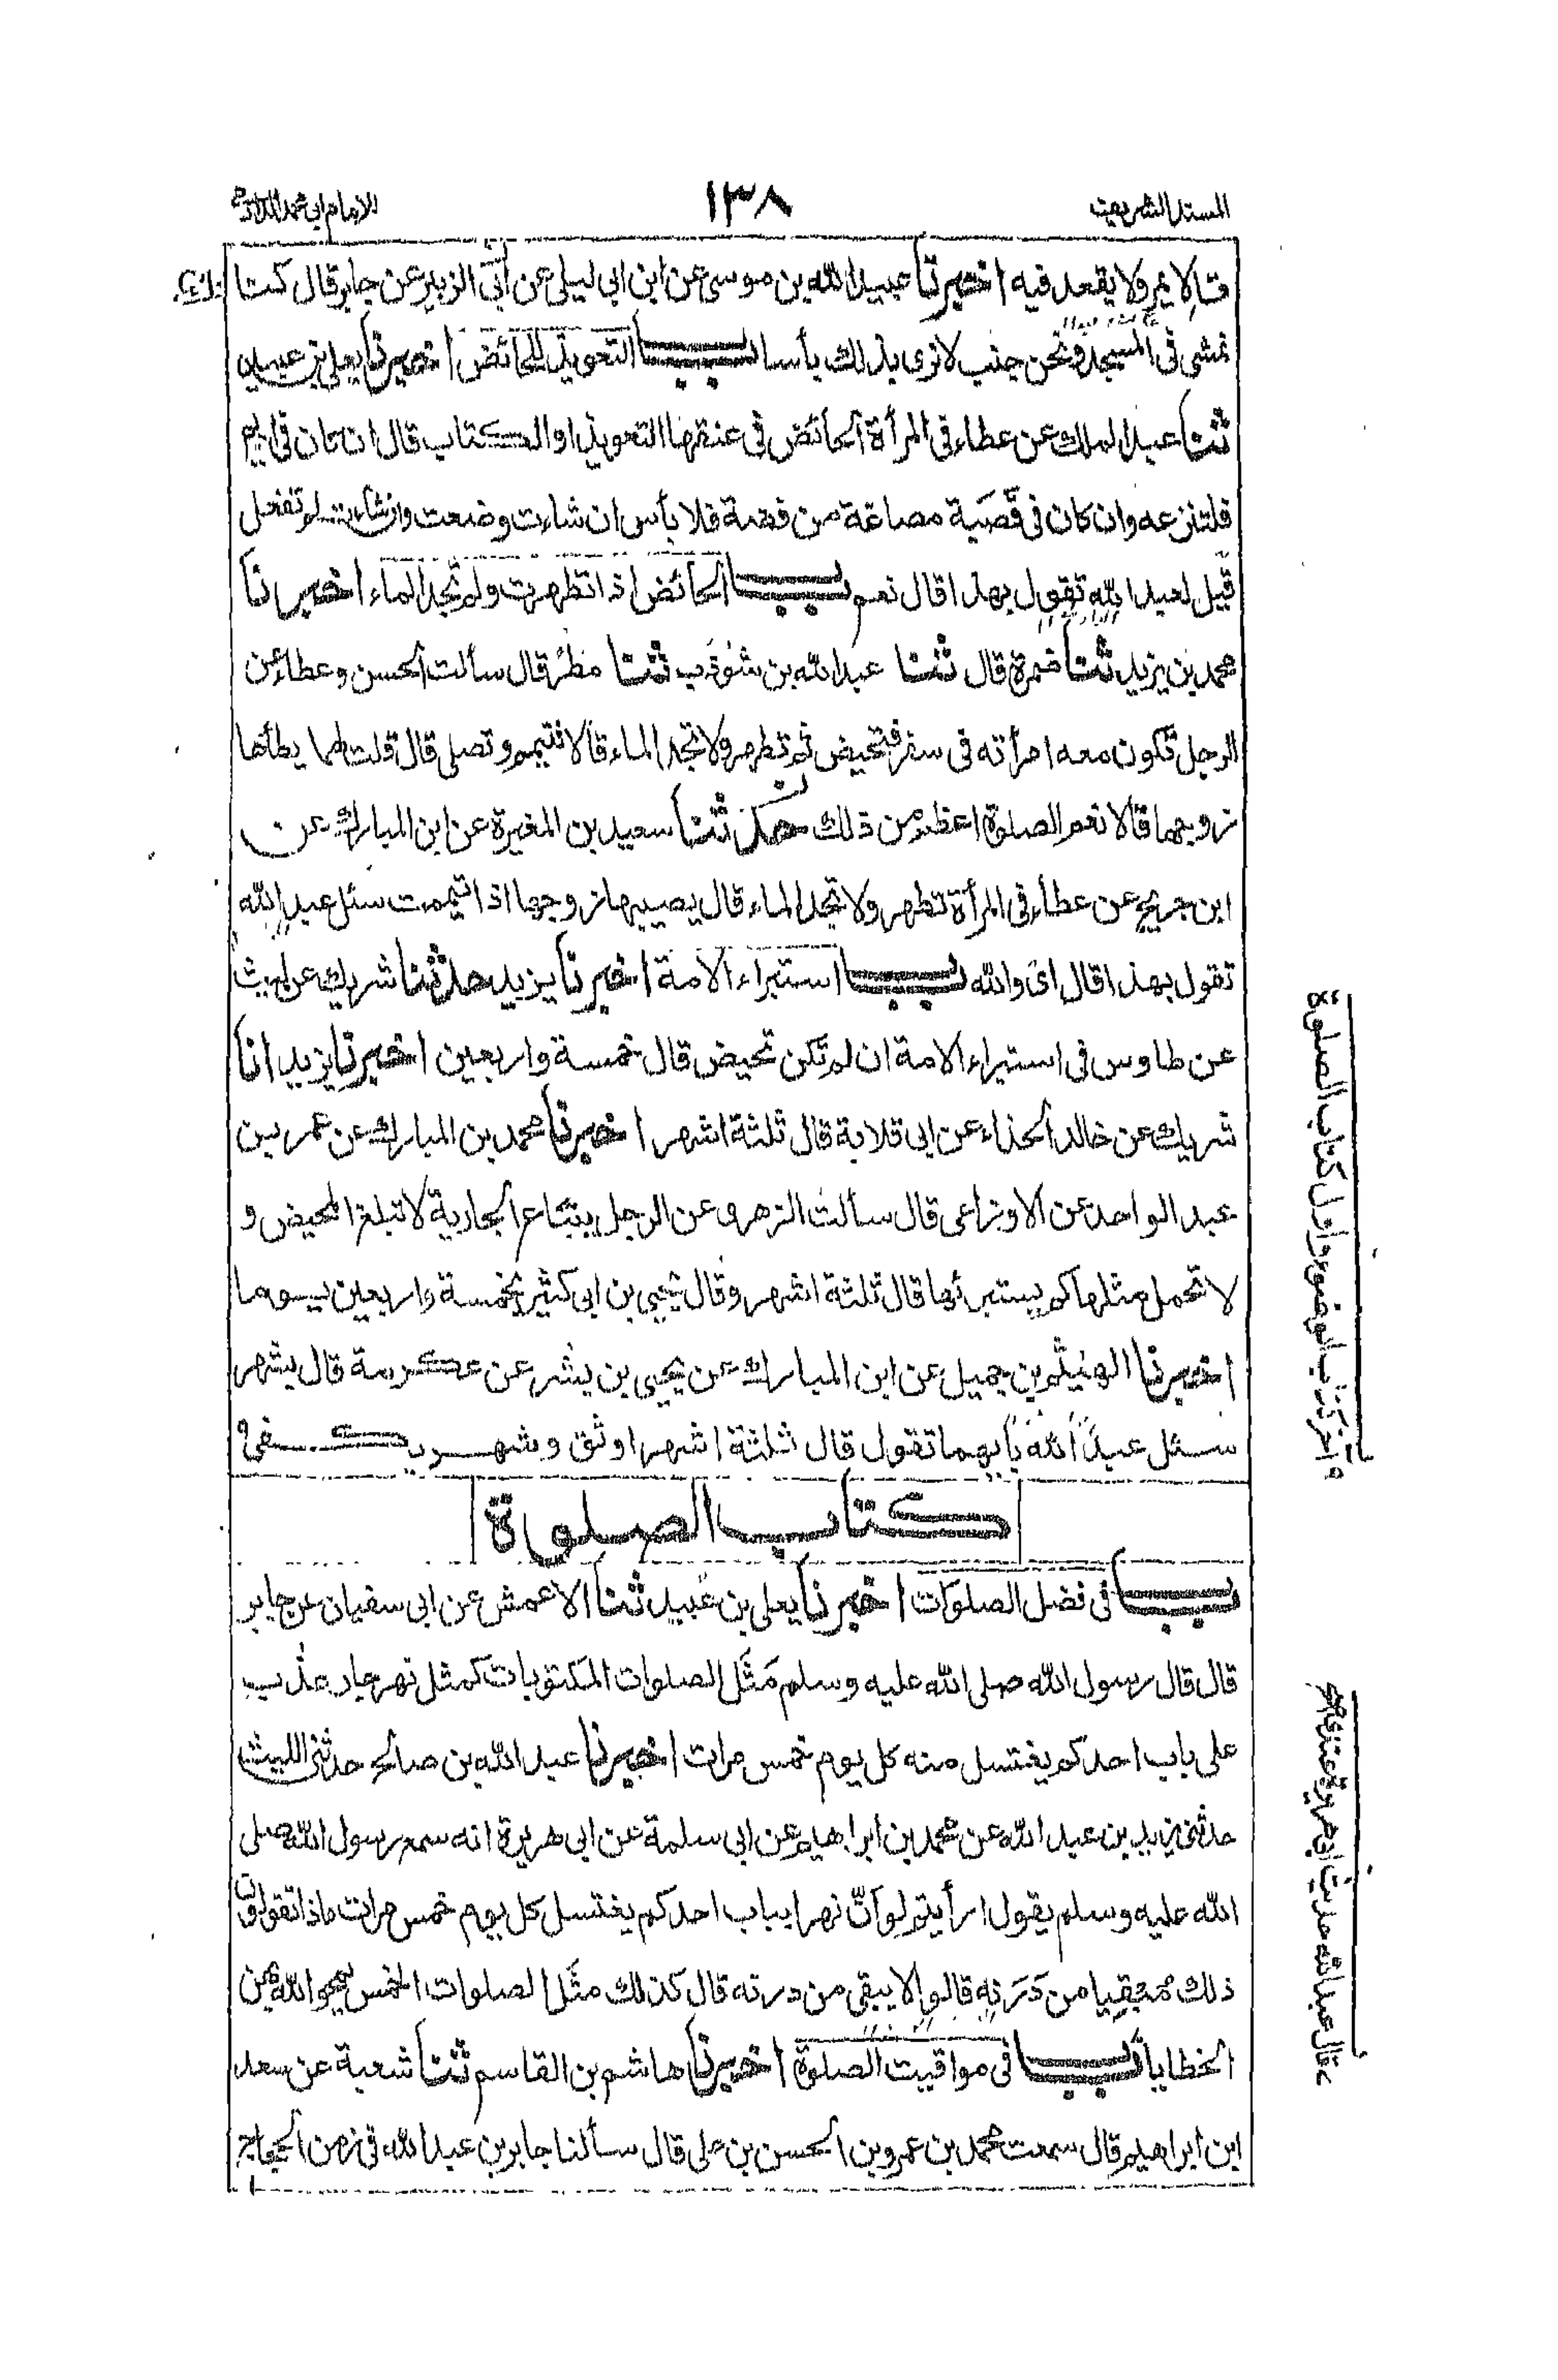 المسند الشريف
١٣٨
للامام ابي محمد الدارمي
قال لا يمر ولا يقعد فيه اخبرنا عبيد الله بن موسى عن ابن ابي ليلى عن ابي الزبير عن جابر قال كنا
نمشي في المسجد ونحن جنب لا نرى بذلك بأسا باب التعويذ للحائض اخبرنا يعلى بن عبيد
ثنا عبد الملك عن عطاء في المرأة الحائض في عنقها التعويذ او الكتاب قال ان كان في اديم
فلتنزعه وان كان في قصبة مصاغة من فضة فلا بأس ان شاءت وضعت وان شاءت لم تفعل
قيل لعبد الله تقول بهذا قال نعم باب الحائض اذا تطهرت ولم تجد الماء اخبرنا
محمد بن يزيد ثنا ضمرة قال ثنا عبد الله بن شوذب ثنا مطر قال سألت الحسن وعطاء عن
الرجل تكون معه امرأته في سفر فتحيض ثم تطهر ولا تجد الماء قالا تتيمم وتصلي قال قلت لهما يطأها
زوجها قالا نعم الصلوة اعظم من ذلك حدثنا سعيد بن المغيرة عن ابن المبارك عن
ابن جريج عن عطاء في المرأة تطهر ولا تجد الماء قال يصيبها زوجها اذا تيممت سئل عبد الله
تقول بهذا قال اى والله باب استبراء الامة اخبرنا يزيد حدثنا شريك عن ليث
عن طاوس في استبراء الامة ان لم تكن تحيض قال خمسة واربعين اخبرنا يزيد انا
شريك عن خالد الحذاء عن ابي قلابة قال ثلثة اشهر اخبرنا محمد بن المبارك عن عمر بن
عبد الواحد عن الاوزاعى قال سألت الزهرى عن الرجل يبتاع الجارية لا تبلغ المحيض و
لا تحمل مثلها كم يستبرئها قال ثلثة اشهر وقال يحيى بن ابي كثير بخمسة واربعين يوما
اخبرنا الهيثم بن جميل عن ابن المبارك عن يحيى بن بشر عن عكرمة قال بشهر
سئل عبد الله بأيهما تقول قال ثلثة اشهر اوثق وشهر يكفي
كتاب الصلوة
باب في فضل الصلوات اخبرنا يعلى بن عبيد ثنا الاعمش عن ابي سفيان عن جابر
قال قال رسول الله صلى الله عليه وسلم مَثَل الصلوات المكتوبات كمثل نهر جار عذب
على باب احدكم يغتسل منه كل يوم خمس مرات اخبرنا عبد الله بن صالح حدثني الليث
حدثني يزيد بن عبد الله عن محمد بن ابراهيم عن ابي سلمة عن ابي هريرة انه سمع رسول الله صلى
الله عليه وسلم يقول ارأيتم لو أنّ نهرا بباب احدكم يغتسل كل يوم خمس مرات ماذا تقولون
ذلك مبقيا من دَرَنِه قالوا لا يبقى من درنه قال كذلك مثَل الصلوات الخمس يمحو الله بهن
الخطايا باب في مواقيت الصلوة اخبرنا هاشم بن القاسم ثنا شعبة عن سعد
ابن ابراهيم قال سمعت محمد بن عمرو بن الحسن بن علي قال سألنا جابر بن عبد الله في زمن الحجاج
آخر كتاب الوضوء واول كتاب الصلوة
قال عبد الله حديث ابي هريرة عندى اصح